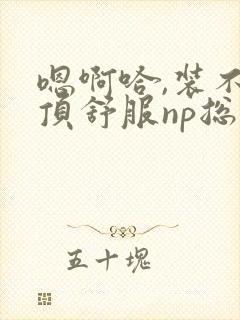 嗯啊哈,装不
顶舒服np总
五十塊